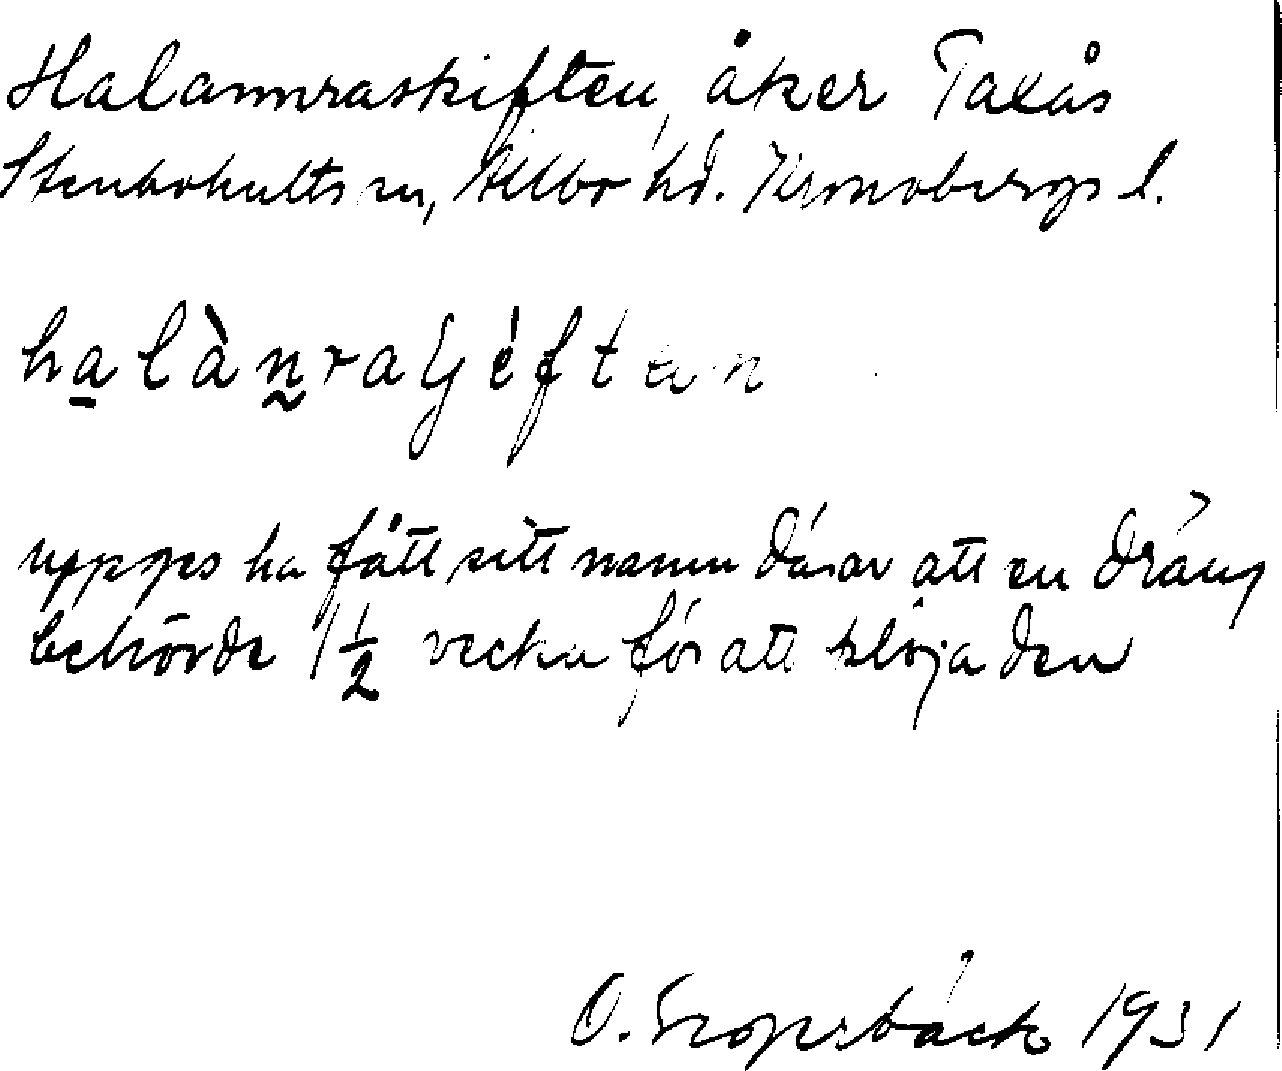 Halannraskiften, åker Taxås
Stenbrohults sn, Allbo hd. Kronobergs l.
halànraʃéften
uppges ha fått sitt namn därav att en dräng
behövde 1 1/2 vecka för att plöja den
O. 1931